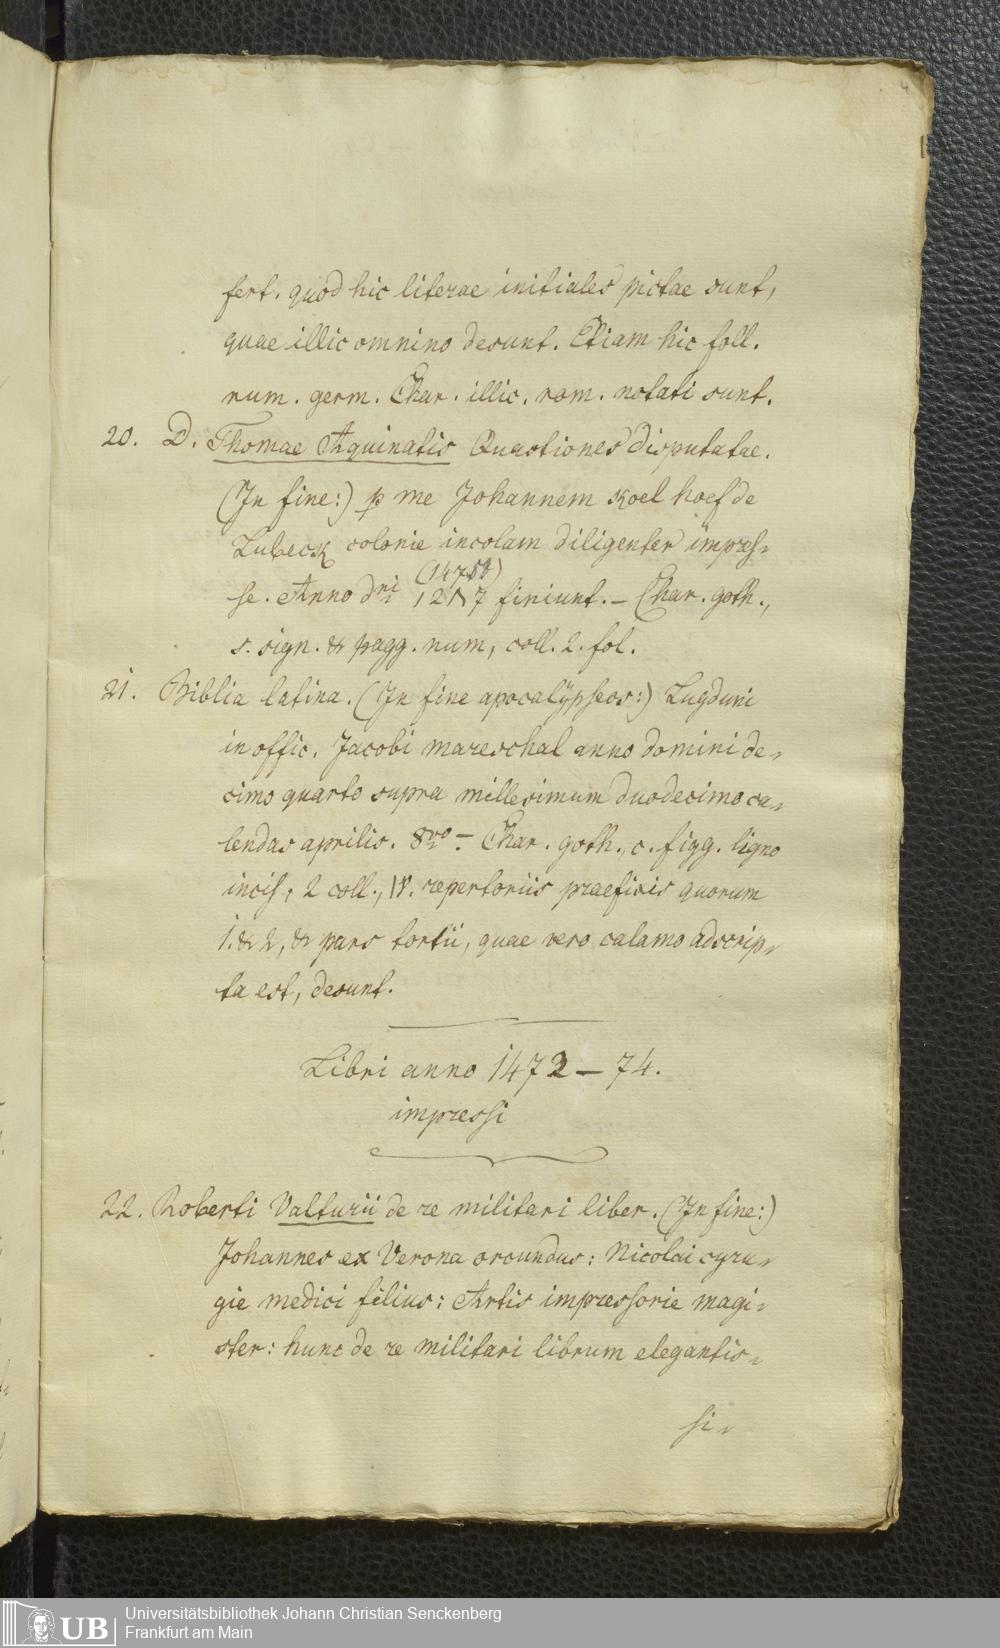 4
fert. quod hic literae initiales pictae sunt,
quae illic omnino desunt. Etiam hic foll.
num. germ. Char. illic. rom. notati sunt.
20. D. Thomae Aquinatis Quaestiones disputatae.
(In fine:) p me Johannem Koel hoef de
Lubeck colonie incolam diligenter impres-
se. Anno dni 1217 finiunt. – Char. goth.,
s. sign. & pagg. num, coll. 2. fol.
21. Biblia latina. (In fine apocalypseos:) Lugduni
in offic. Jacobi mareschal anno domini de-
cimo quarto supra millesimum duodecimo ca-
lendas aprilis. 8vo – Char. goth., c. figg. ligno
incis, 2 coll., repertoriis praefixis quorum
1. & 2, & pars tertii, quae vero calamo adscrip-
ta est, desunt.
Libri anno 1472 – 74.
impressi
22. Roberti Valturii de re militari liber. (In fine:)
Johannes ex Verona oroundus: Nicolai cyru-
gie medici filius: Artis impressorie magi-
ster: hunc de re militari librum elegantis-
si-
UB
Universitätsbibliothek Johann Christian Senckenberg
Frankfurt am Main